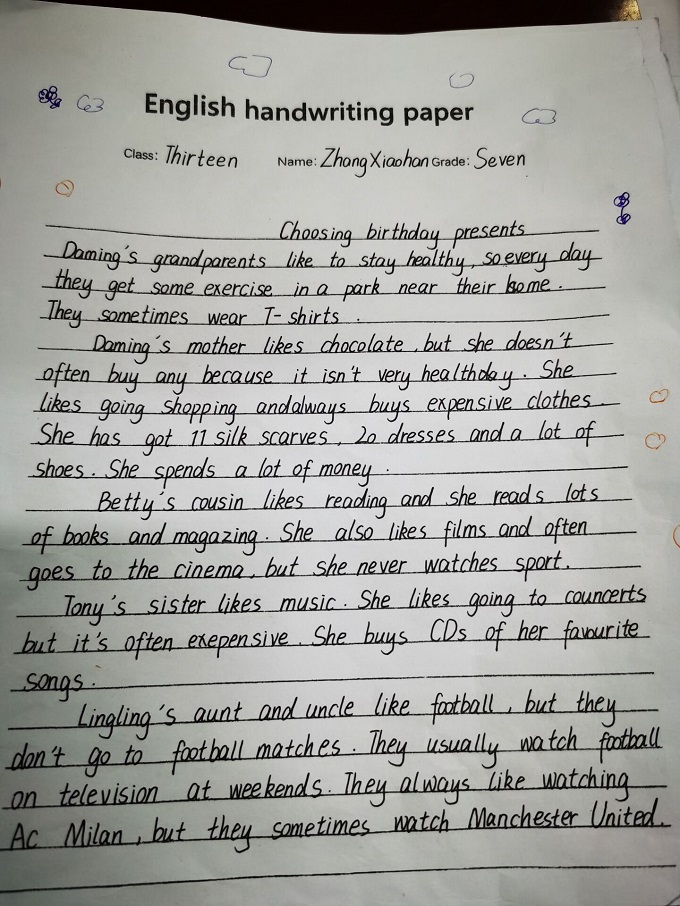 English handwriting paper
Class: Thirteen Name: Zhang Xiaohan Grade: Seven
Choosing birthday presents
Daming's grandparents like to stay healthy, so every day
they get some exercise in a park near their home.
They sometimes wear T-shirts.
Daming's mother likes chocolate, but she doesn't
often buy any because it isn't very healthday. She
likes going shopping andalways buys expensive clothes.
She has got 11 silk scarves, 20 dresses and a lot of
shoes. She spends a lot of money.
Betty's cousin likes reading and she reads lots
of books and magazing. She also likes films and often
goes to the cinema, but she never watches sport.
Tony's sister likes music. She likes going to councerts
but it's often exepensive. She buys CDs of her favourite
songs.
Lingling's aunt and uncle like football, but they
don't go to football matches. They usually watch football
on television at weekends. They always like watching
Ac Milan, but they sometimes watch Manchester United.